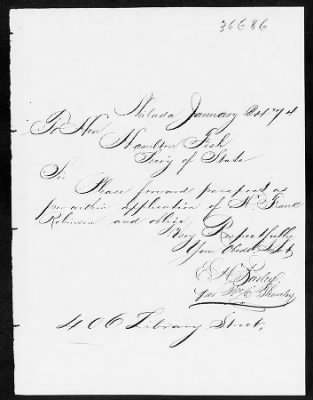 36686
Philada January 24th 74
To Hon
Hamilton Fish
Secy of State
Sir Please forward passport as
per within application of W. Frank
Robinson and oblige
Very Respectfully
Your Obedt Servt
E H
per
406 Library Street,